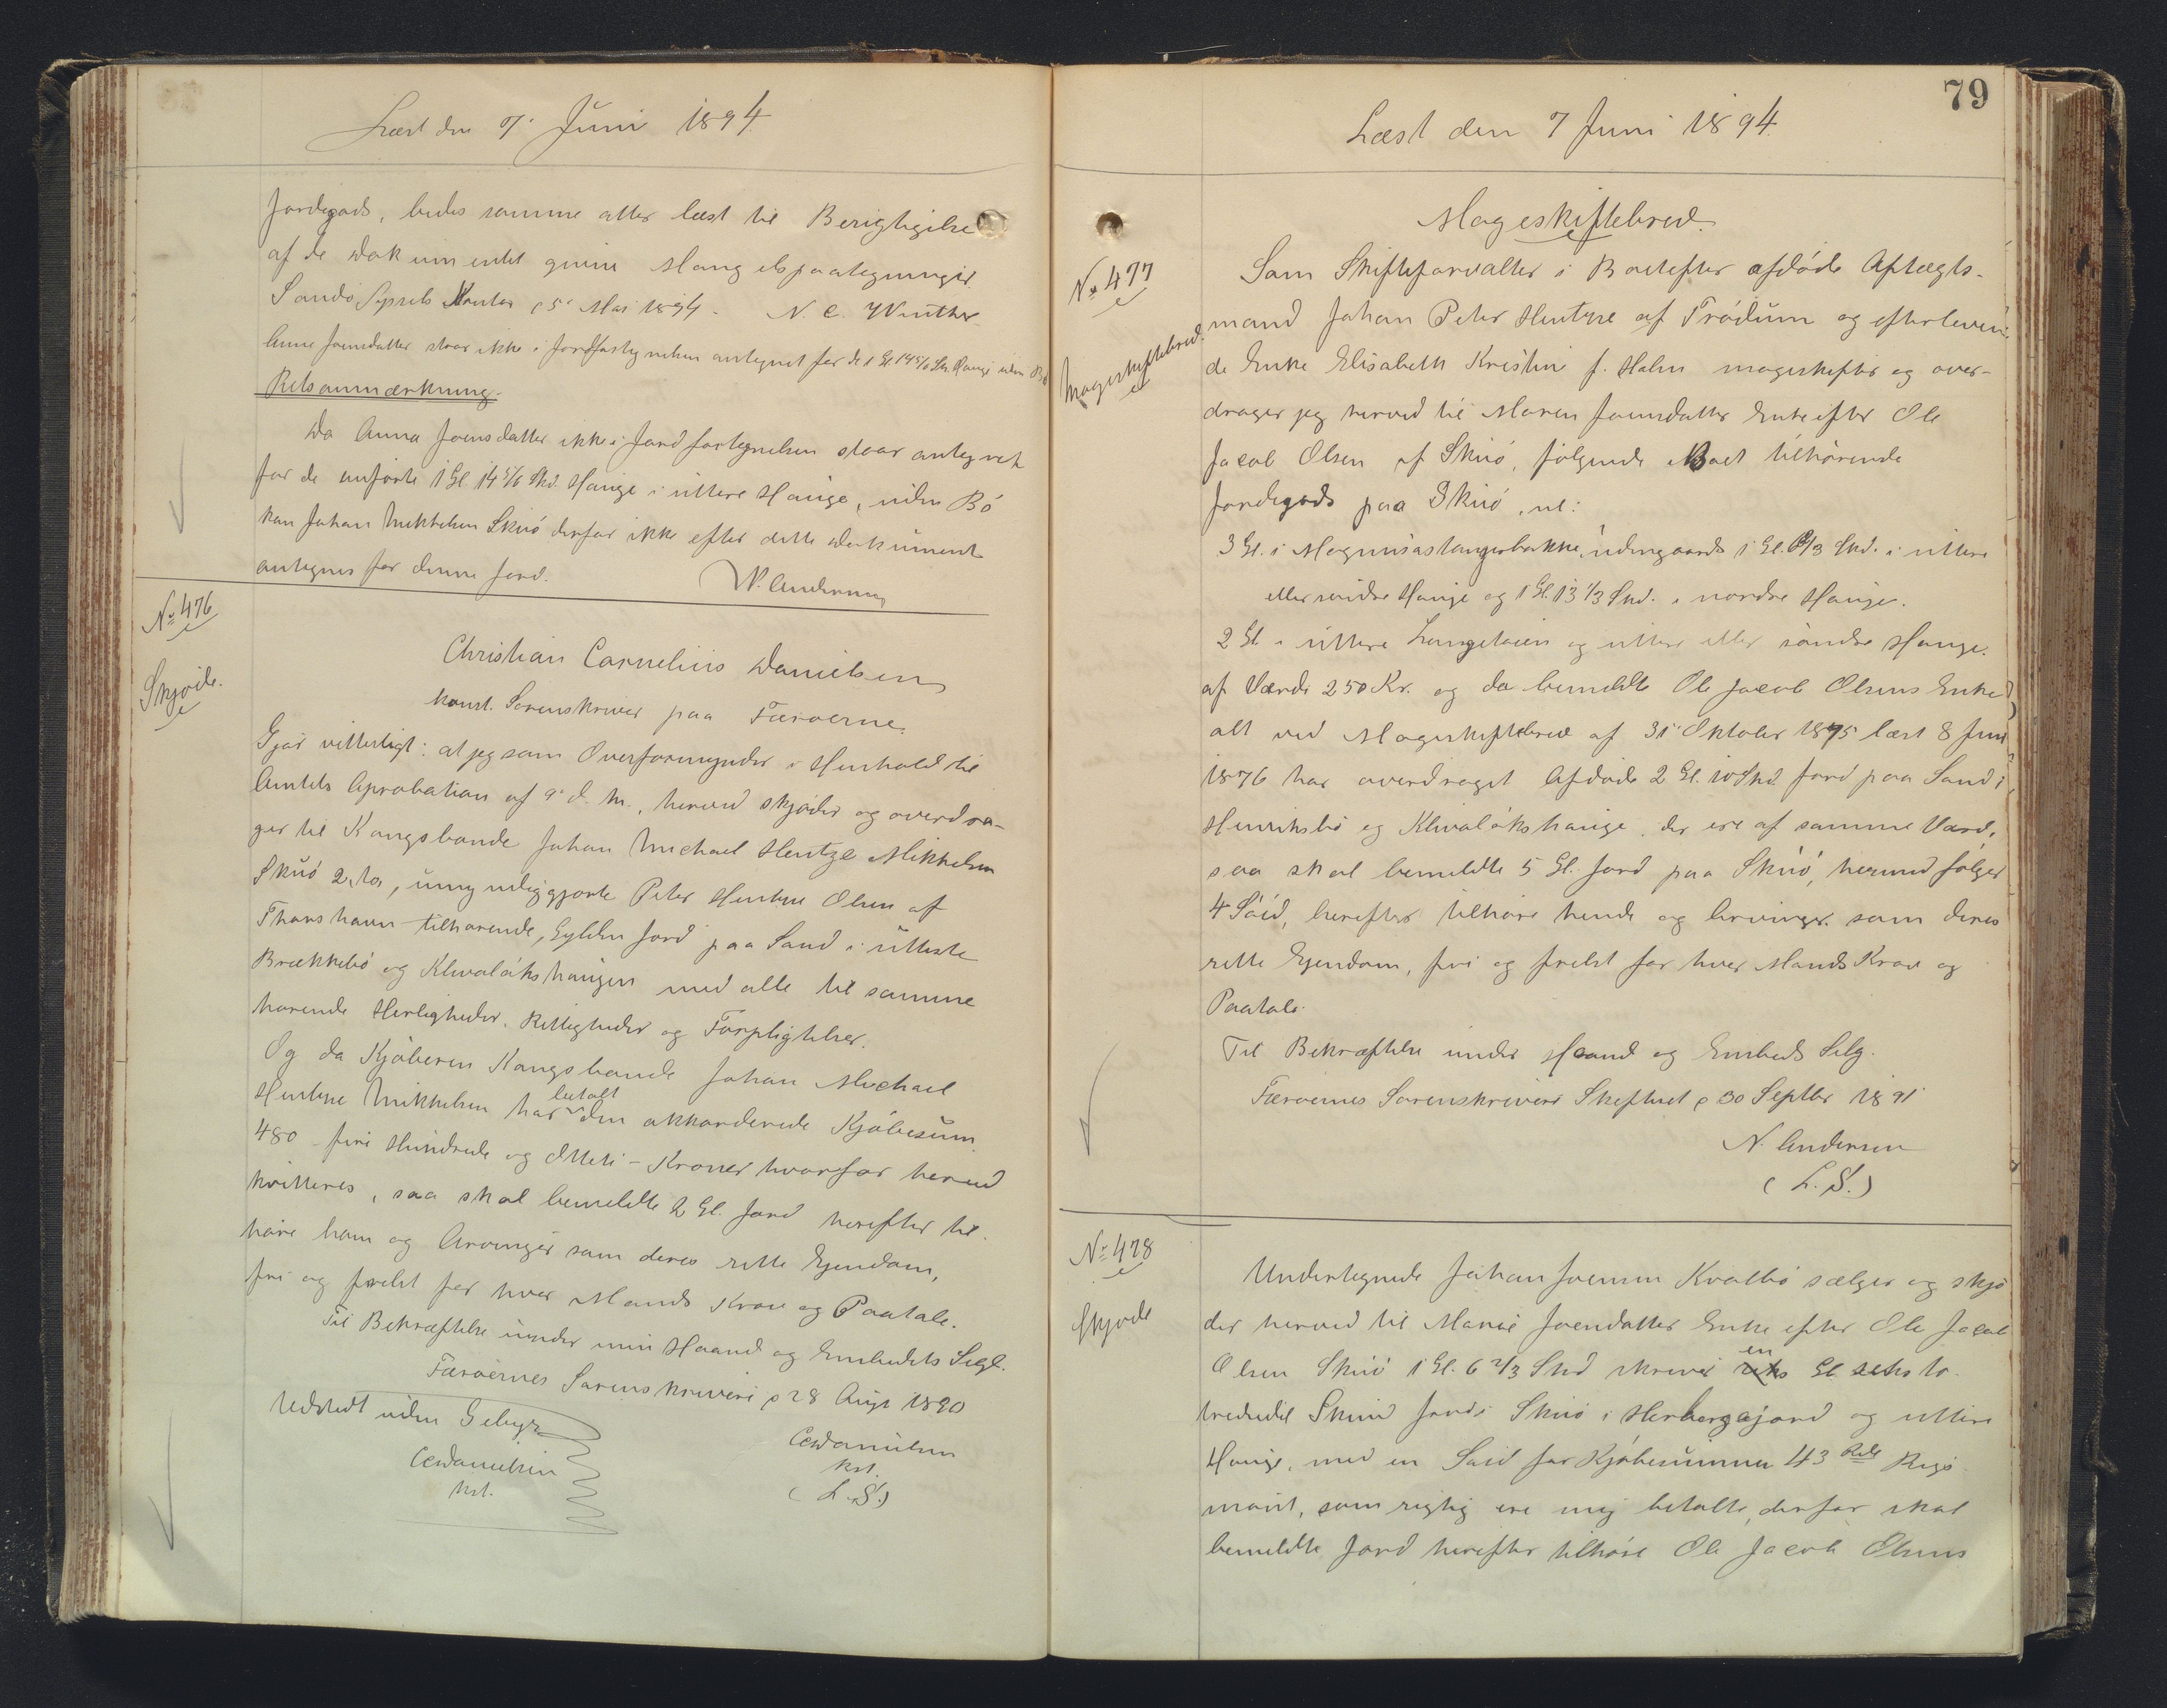 Læst den 7' Juni 1894.
Jordegods, bedes samme atter læst til Berigtigelse
af de Dokumentet givne Mangelspaategninger.
Sandø Syssels Kontor p 5' Mai 1894. N. C. Winther
Anne Joensdatter staar ikke i Jordfortegnelsen antegnet for de 1 Gl 14 5/6 Sk. Hauge uden Bø
Retsanmærkning.
Da Anna Joensdatter ikke i Jordfortegnelsen staar antegnet
for de anførte 1 Gl 14 5/6 Skd. Hauge i uttere Hauge, uden Bø
kan Johan Mikkelsen Skuø derfor ikke efter dette Dokument
antegnes for denne Jord.
W. Andersen
No 476
Skjøde.
Christian Cornelius Danielsen
konst. Sorenskriver paa Færøerne.
Gjør vitterligt: at jeg som Overformynder i Henhold til
Amtets Aprobation af 9' d. M., herved skjøder og overdra-
ger til Kongsbonde Johan Michael Hentze Mikkelsen
Skuø 2, to, umyndiggjorte Peter Hentze Olsen af
Thorshavn tilhørende, Gylden Jord paa Sand i utteste
Brekkebø og Klivaløkshaugen med alle til samme
hørende Herligheder, Rettigheder og Forpligtelser.
Og da Kjøberen Kongsbonde Johan Michael
Hentze Mikkelsen har betalt den akkorderede Kjøbesum
480 - fire Hundrede og Otteti - Kroner hvorfor herved
kvitteres, saa skal bemeldte 2 Gl. Jord herefter til-
høre ham og Arvinger som deres rette Ejendom,
fri og frelst for hver Mands Krav og Paatale.
Til Bekræftelse under min Haand og Embedets Segl.
Færøernes Sorenskriveri p 28 Aug 1890
Udstedt uden Gebyr
CCDanielsen
kst.
CCDanielsen
kst.
(L. S.)
79
Læst den 7 Juni 1894.
No 477
Mageskiftebrev.
Mageskiftebrev.
Som Skifteforvalter i Boet efter afdøde Aftægts-
mand Johan Peter Hentze af Trødum og efterleven-
de Enke Elisabeth Kristine f. Holm mageskifter og over-
drager jeg herved til Maren Joensdatter Enke efter Ole
Jacob Olsen af Skuø, følgende Boet tilhørende
Jordegods paa Skuø, nl:
3 Gl. i Magnusastangerbakke, udengaards 1 Gl. 1/3 Skd. i uttere
eller søndre Hauge og 1 Gl. 13 1/3 Skd. i nordre Hauge.
2 Gl. i uttere Langetoien og uttere eller søndre Hauge.
af Værdi 250 Kr. og da bemeldte Ole Jacob Olsens Enke
alt ved Mageskiftebrev af 31' Oktober 1875 læst 8 Juni
1876 har overdraget Afdøde 2 Gl. 10 Skd. Jord paa Sand i
Henriksbø og Klivaløkshauge, der ere af samme Værd,
saa skal bemeldte 5 Gl. Jord paa Skuø, hermed følger
4 Søid, herefter tilhøre hende og Arvinger som deres
rette Ejendom, fri og frelst for hver Mands Krav og
Paatale.
Til Bekræftelse under Haand og Embeds Selg.
Færøernes Sorenskriveri Skifteret p 30 Septbr 1891
N. Andersen
(L. S.)
No 478
Skjøde
Undertegnede Johan Joensen Kvalbø sælger og skjø
der herved til Marie Joendatter Enke efter Ole Jacob
Olsen Skuø 1 Gl. 6 2/3 Skd skriver en Gl. seks to
trediedel Skind Jord i Skuø i Herbergajord og uttere
Hauge, med en Søid for Kjøbesummen 43 Rdl Rigs
mønt, som rigtig ere mig betalte, derfor skal
bemeldte Jord herefter tilhøre Ole Jacob Olsens